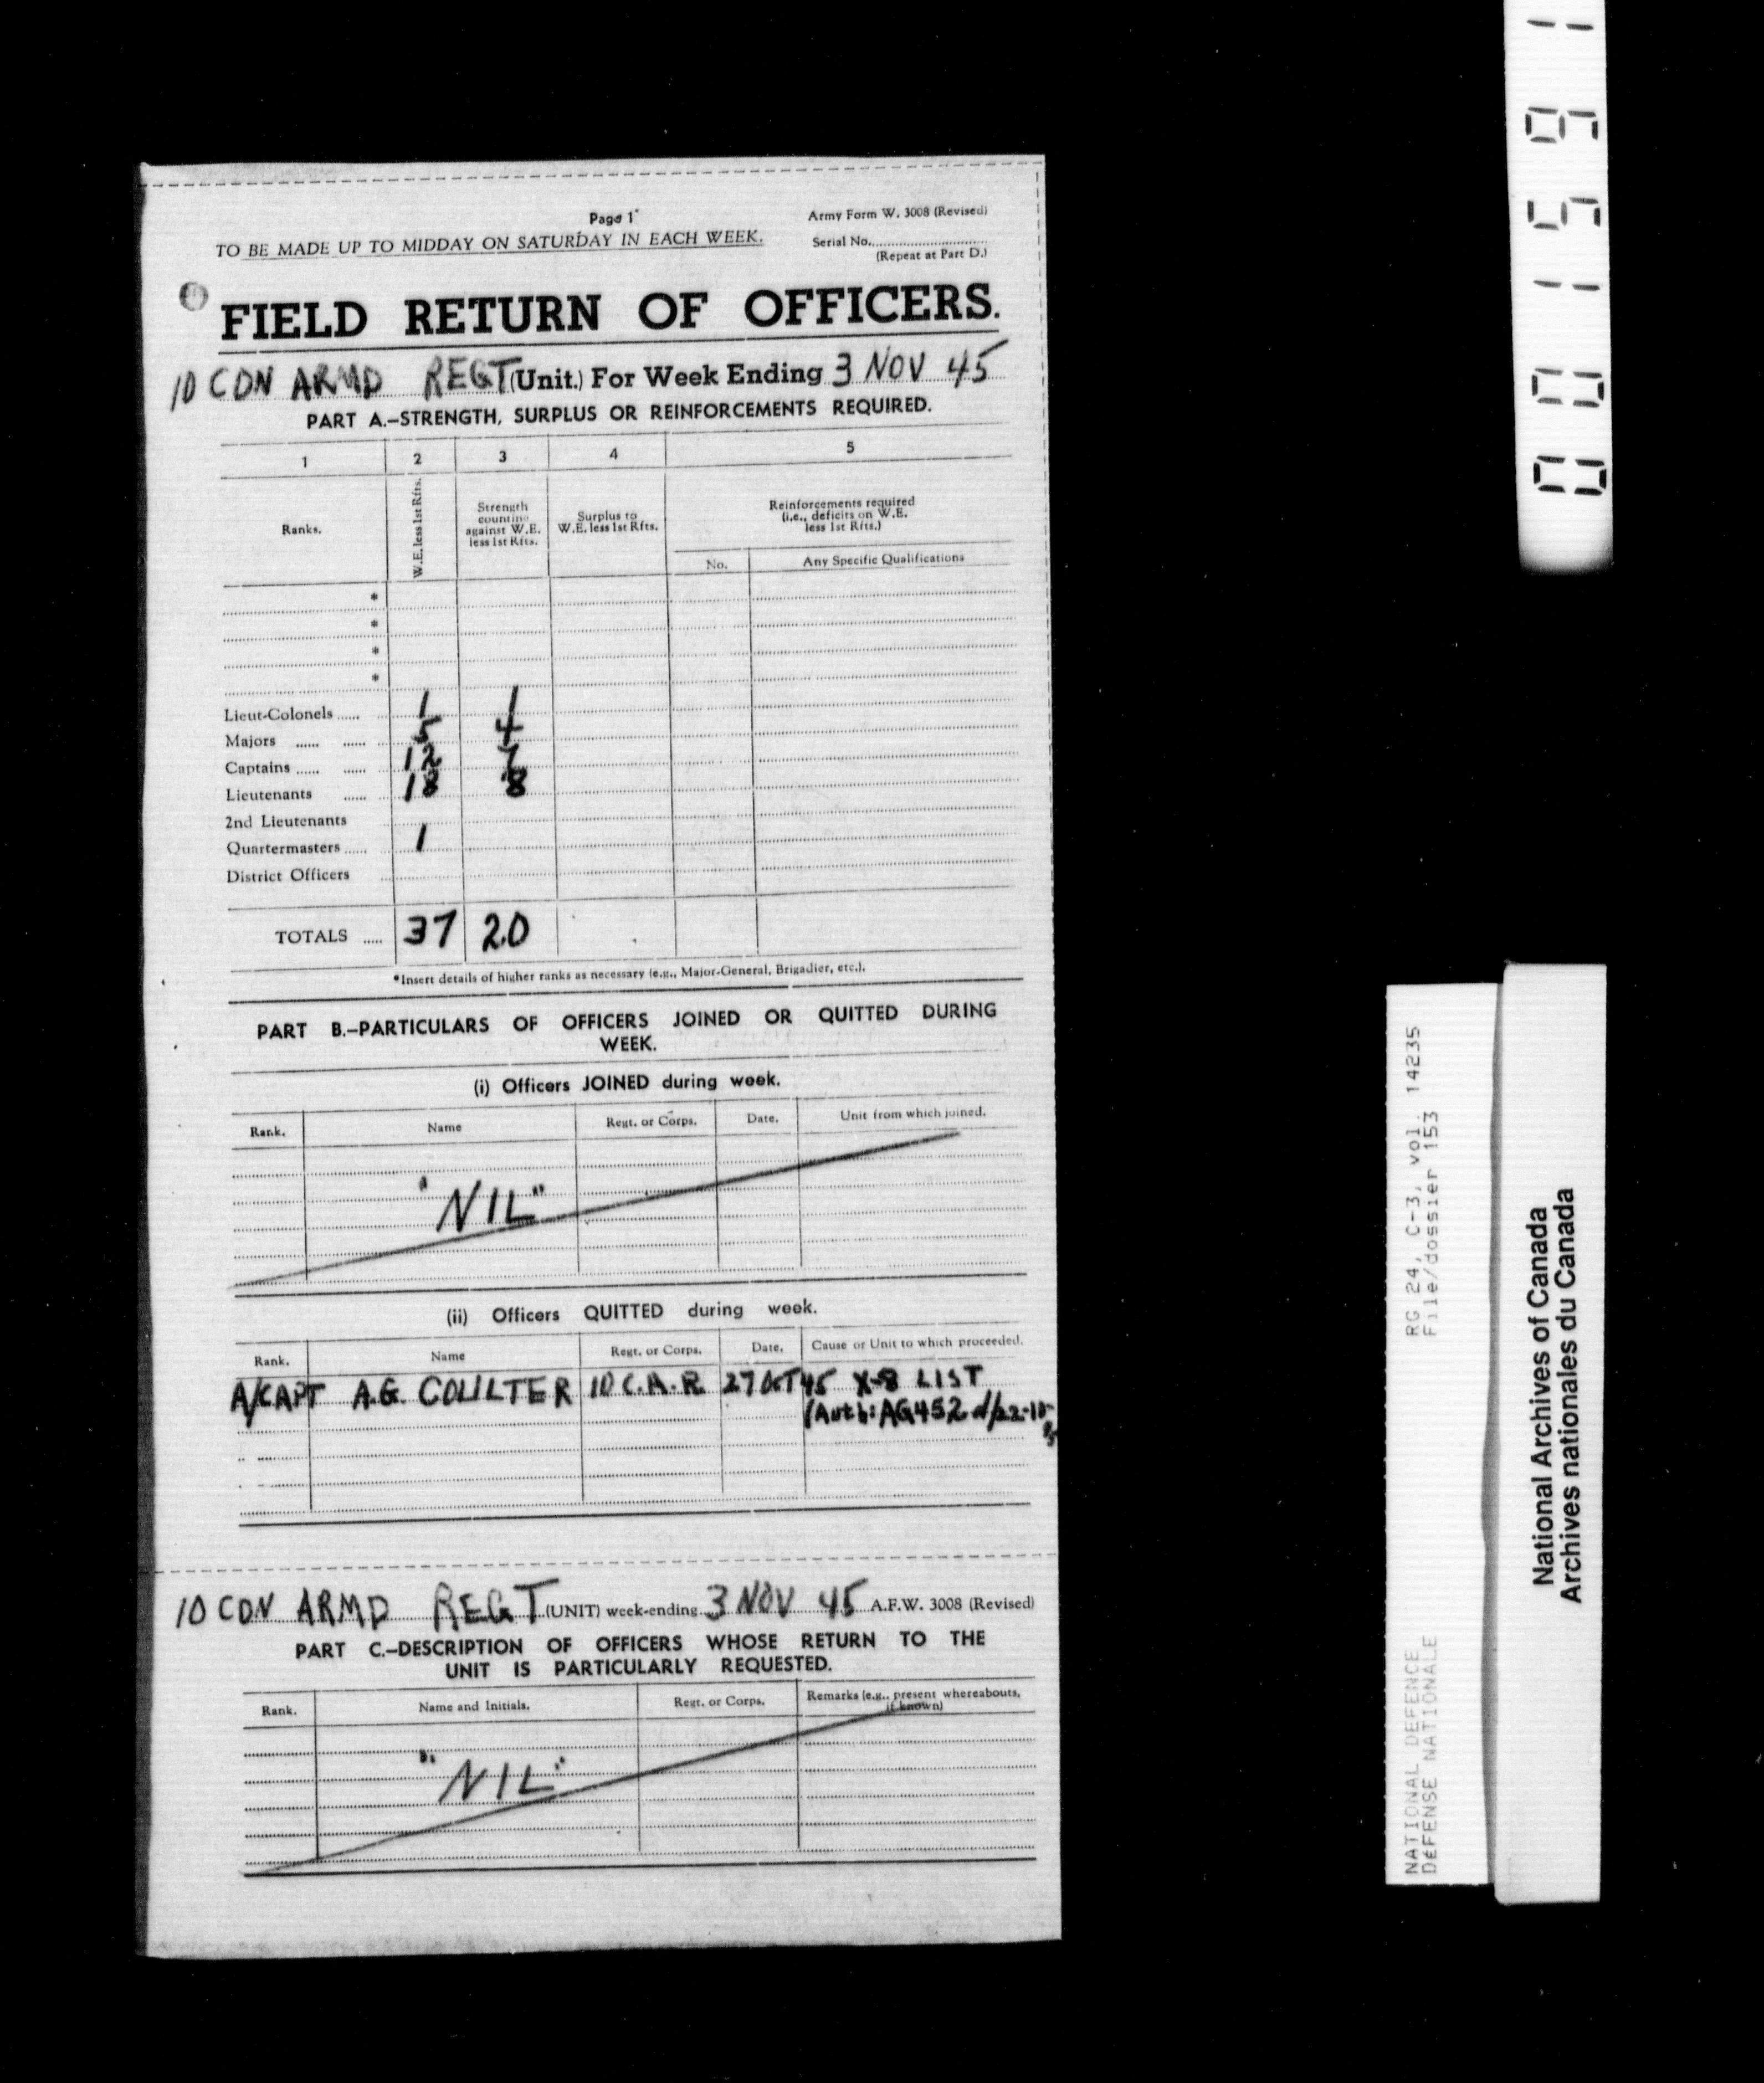 Page 1
Army Form W. 3008 (Revised)
TO BE MADE UP TO MIDDAY ON SATURDAY IN EACH WEEK.
Serial No..............................
(Repeat at Part D.)
FIELD RETURN OF OFFICERS.
10 CDN ARMD REGT (Unit.) For Week Ending 3 NOV 45
PART A.—STRENGTH, SURPLUS OR REINFORCEMENTS REQUIRED.
1 2 3 4 5
Ranks.
W.E. less 1st Rfts.
Strength
counting
against W.E.
less 1st Rfts.
Surplus to
W.E. less 1st Rfts.
Reinforcements required
(i.e., deficits on W.E.
less 1st Rfts.)
No. Any Specific Qualifications
*
*
*
*
Lieut-Colonels ...... 1 1
Majors ...... ...... 5 4
Captains ...... ...... 12 7
Lieutenants ...... 18 8
2nd Lieutenants
Quartermasters ...... 1
District Officers
TOTALS ..... 37 20
*Insert details of higher ranks as necessary (e.g., Major-General, Brigadier, etc.).
PART B.—PARTICULARS OF OFFICERS JOINED OR QUITTED DURING
WEEK.
(i) Officers JOINED during week.
Rank. Name Regt. or Corps. Date. Unit from which joined.
"NIL"
(ii) Officers QUITTED during week.
Rank. Name Regt. or Corps. Date. Cause or Unit to which proceeded.
A/CAPT A.G. COULTER 10 C.A.R. 27 OCT 45 X-8 LIST
(Auth: AG452 d/22-10-
45
10 CDN ARMD REGT (UNIT) week-ending 3 NOV 45 A.F.W. 3008 (Revised)
PART C.—DESCRIPTION OF OFFICERS WHOSE RETURN TO THE
UNIT IS PARTICULARLY REQUESTED.
Rank. Name and Initials. Regt. or Corps. Remarks (e.g., present whereabouts,
if known)
"NIL"
001591
NATIONAL DEFENCE RG 24, C-3, vol. 14235
DÉFENSE NATIONALE File/dossier 153
National Archives of Canada
Archives nationales du Canada